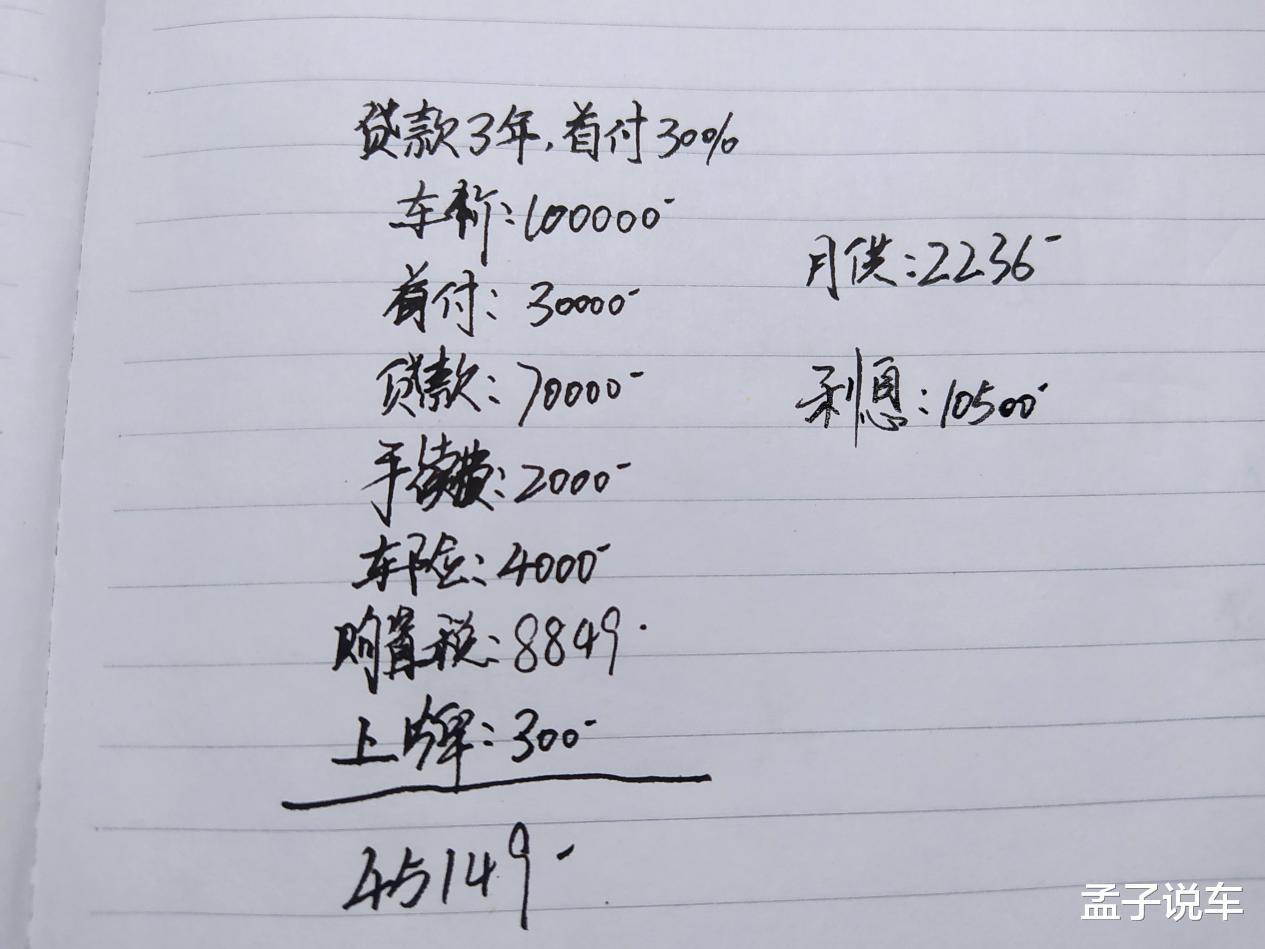 贷款3年,首付30%
车价:100000-
首付:30000-
贷款:70000-
手续费:2000-
车险:4000-
购置税:8849.
上牌:300-
45149-
月供:2236-
利息:10500-
孟子说车